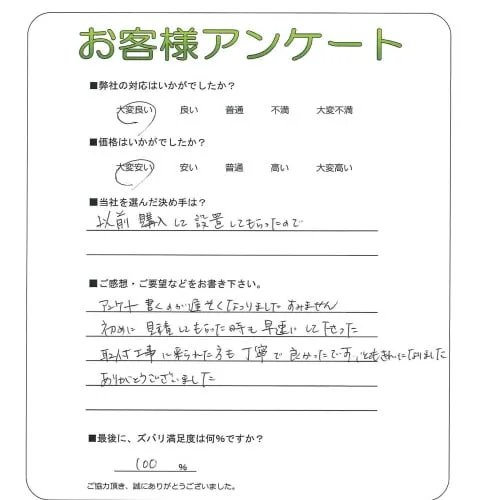 お客様アンケート
■弊社の対応はいかがでしたか？
大変良い 良い 普通 不満 大変不満
■価格はいかがでしたか？
大変安い 安い 普通 高い 大変高い
■当社を選んだ決め手は？
以前購入して設置してもらったので
■ご感想・ご要望などをお書き下さい。
アンケート書くのが遅くなりましたすみません
初めに見積してもらった時も早速にして下さった
取付工事に来られた方も丁寧で良かったです
ありがとうございました
■最後に、ズバリ満足度は何%ですか？
100 %
ご協力頂き、誠にありがとうございました。